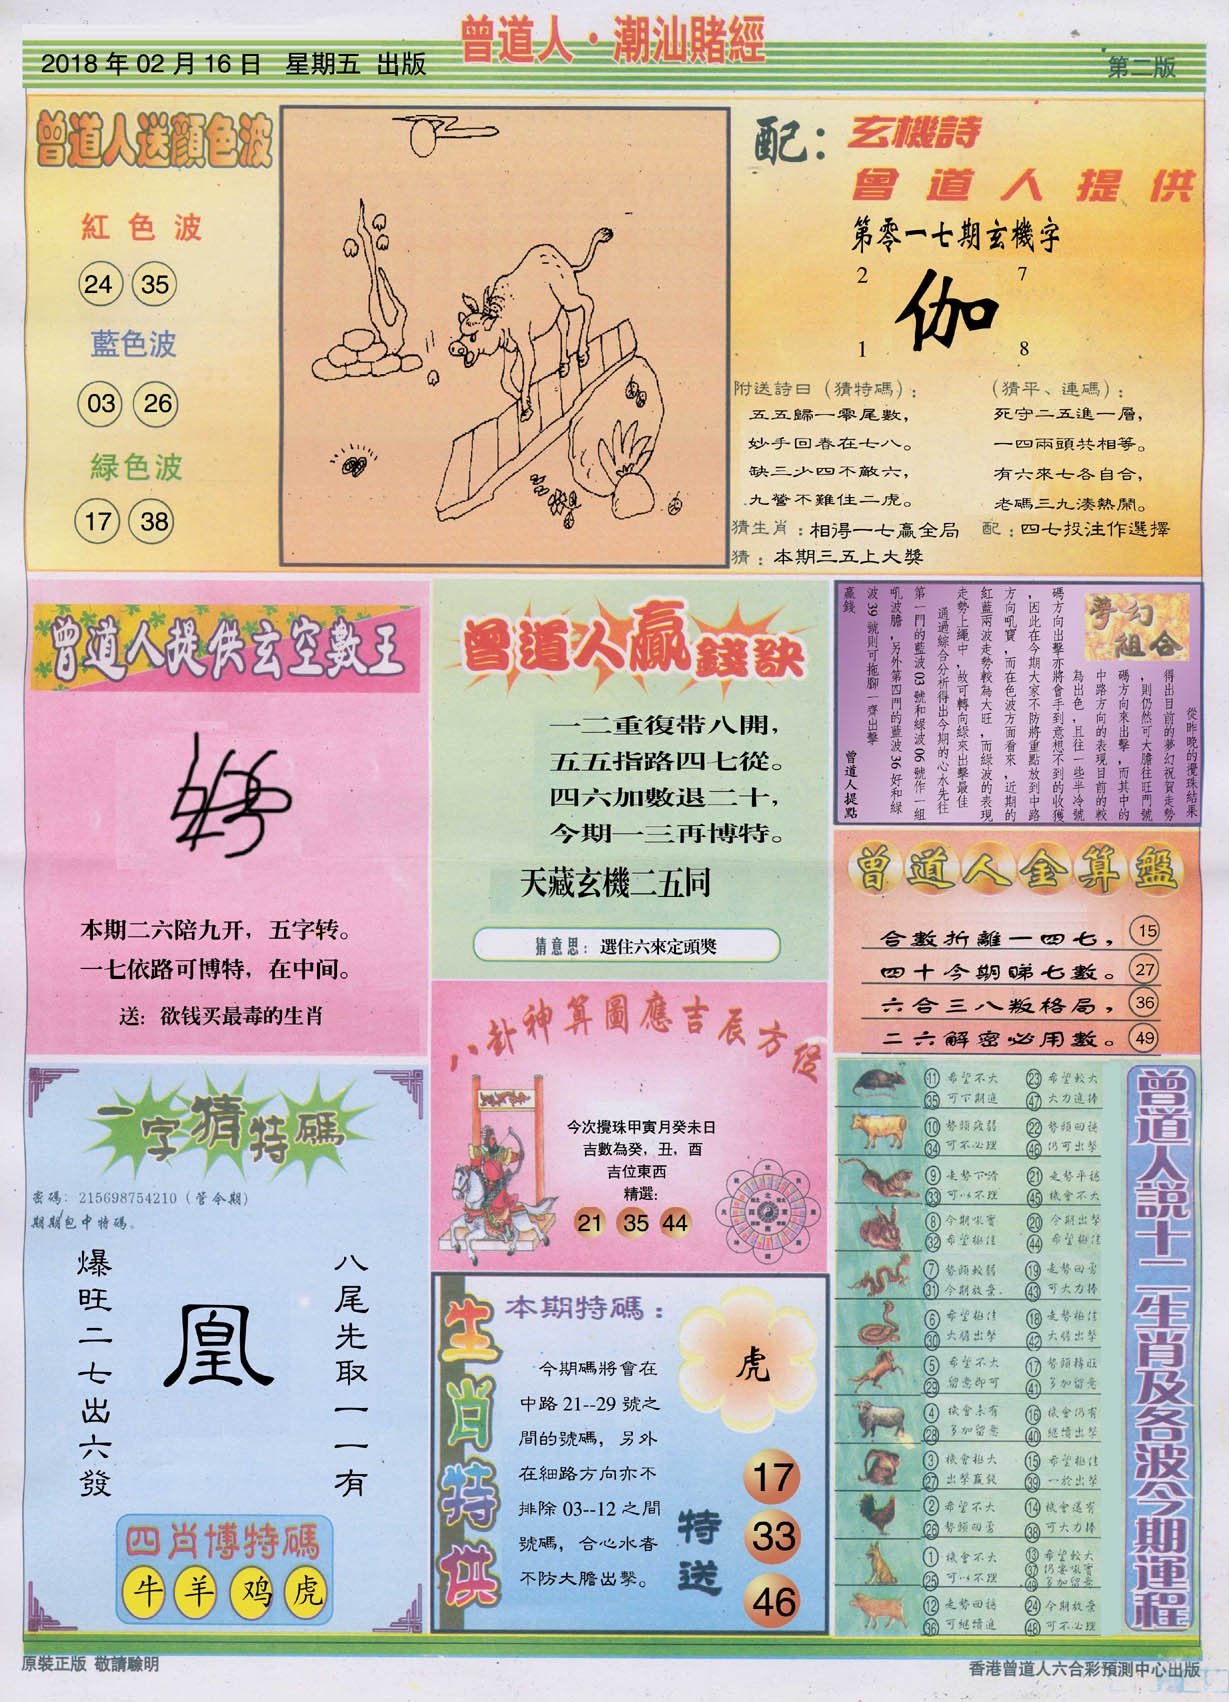 2018 年 02 月 16 日 星期五 出版
曾道人·潮汕賭經
第二版
曾道人送顏色波
紅色波
24 35
藍色波
03 26
緑色波
17 38
配：
玄機詩
曾道人提供
第零一七期玄機字
2 7
伽
1 8
附送詩曰（猜特碼）：
五五歸一零尾數，
妙手回春在七八。
缺三少四不敵六，
九警不難住二虎。
（猜平、連碼）：
死守二五進一層，
一四兩頭共相等。
有六來七各自合，
老碼三九湊熱鬧。
猜生肖：相得一七贏全局
配：四七投注作選擇
猜：本期三五上大獎
曾道人提供玄空數王
本期二六陪九开，五字转。
一七依路可博特，在中间。
送：欲钱买最毒的生肖
曾道人贏錢訣
一二重復带八開，
五五指路四七從。
四六加數退二十，
今期一三再博特。
天藏玄機二五同
猜意思：選住六來定頭獎
夢幻組合
從昨晚的攪珠結果
得出目前的夢幻祝賀走勢
，則仍然可大膽往旺門號
碼方向來出擊，而其中的
中路方向的表現目前的較
為出色，且往一些半冷號
碼方向出擊亦將會手到意想不到的收獲
，因此在今期大家不防將重點放到中路
方向吼寶，而在色波方面看來，近期的
紅藍兩波走勢較為大旺，而緑波的表現
走勢上繩中，故可轉向緑來出擊最佳
通過綜合分析得出今期的心水先往
第一門的藍波 03 號和緑波 06 號作一組
吼波膽，另外第四門的藍波 36 好和緑
波 39 號則可拖腳一齊出擊
贏錢
曾道人提點
曾道人金算盤
合數折離一四七， 15
四十今期睇七數。 27
六合三八叛格局， 36
二六解密必用數。 49
八卦神算圖應吉辰方位
今次攪珠甲寅月癸未日
吉數為癸，丑，酉
吉位東西
精選：
21 35 44
一字猜特碼
密碼：215698754210（管今期）
期期包中特碼。
爆旺二七出六發
凰
八尾先取一一有
四肖博特碼
牛 羊 鸡 虎
生肖特供
本期特碼：
今期碼將會在
中路 21--29 號之
間的號碼，另外
在細路方向亦不
排除 03--12 之間
號碼，合心水者
不防大膽出擊。
虎
特送
17
33
46
曾道人説十二生肖及各波今期運程
11 希望不大 23 希望較大
35 可下期進 47 大力進捧
10 勢頭疲弱 22 勢頭回揚
34 可不必理 46 仍可出擊
9 走勢下滑 21 走勢平穩
33 可以不理 45 機會不大
8 今期吼實 20 今期出擊
32 希望極佳 44 希望極佳
7 勢頭較弱 19 走勢回勇
31 今期放棄 43 可大力捧
6 希望極佳 18 走勢極佳
30 大膽出擊 42 大膽出擊
5 希望不大 17 勢頭轉旺
29 留意即可 41 多加留意
4 機會未有 16 機會仍有
28 多加留意 40 繼續出擊
3 機會極大 15 希望極佳
27 出擊贏錢 39 一於出擊
2 希望不大 14 機會還有
26 勢頭回勇 38 可大力捧
1 機會不大 13 希望較大
25 可以不理 37 仍要吼實
49 多加留意
12 走勢回穩 24 今期放棄
36 可繼續進 48 可不必理
原裝正版 敬請驗明
香港曾道人六合彩預測中心出版